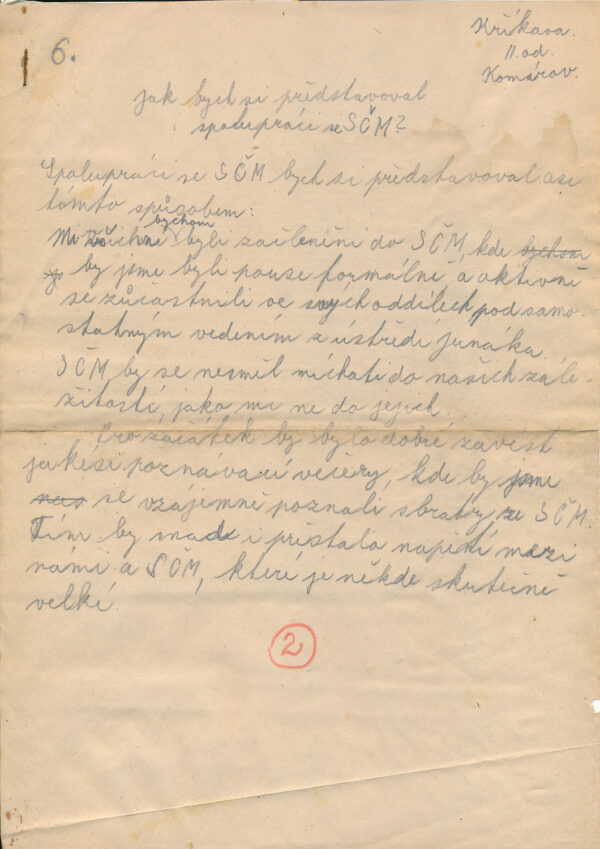 6.
Křikava.
11. od.
Komárov.
Jak bych si představoval
spolupráci se SČM?
Spolupráci se SČM bych si představoval asi
tímto způsobem:
My všichni bychom byli začleněni do SČM, kde bychom
by jsme byli pouse formálně a aktivně
se zúčastnili ve svých oddílech pod samo-
statným vedením z ústředí Junáka.
SČM by se nesměl míchati do našich zále-
žitostí, jako my ne do jejich.
Pro začátek by bylo dobré zavést
jakési poznávací večery, kde by jsme
se vzájemně poznali s bratry ze SČM.
Tím by snad i přestalo napětí mezi
námi a SČM, které je někde skutečně
velké.
2